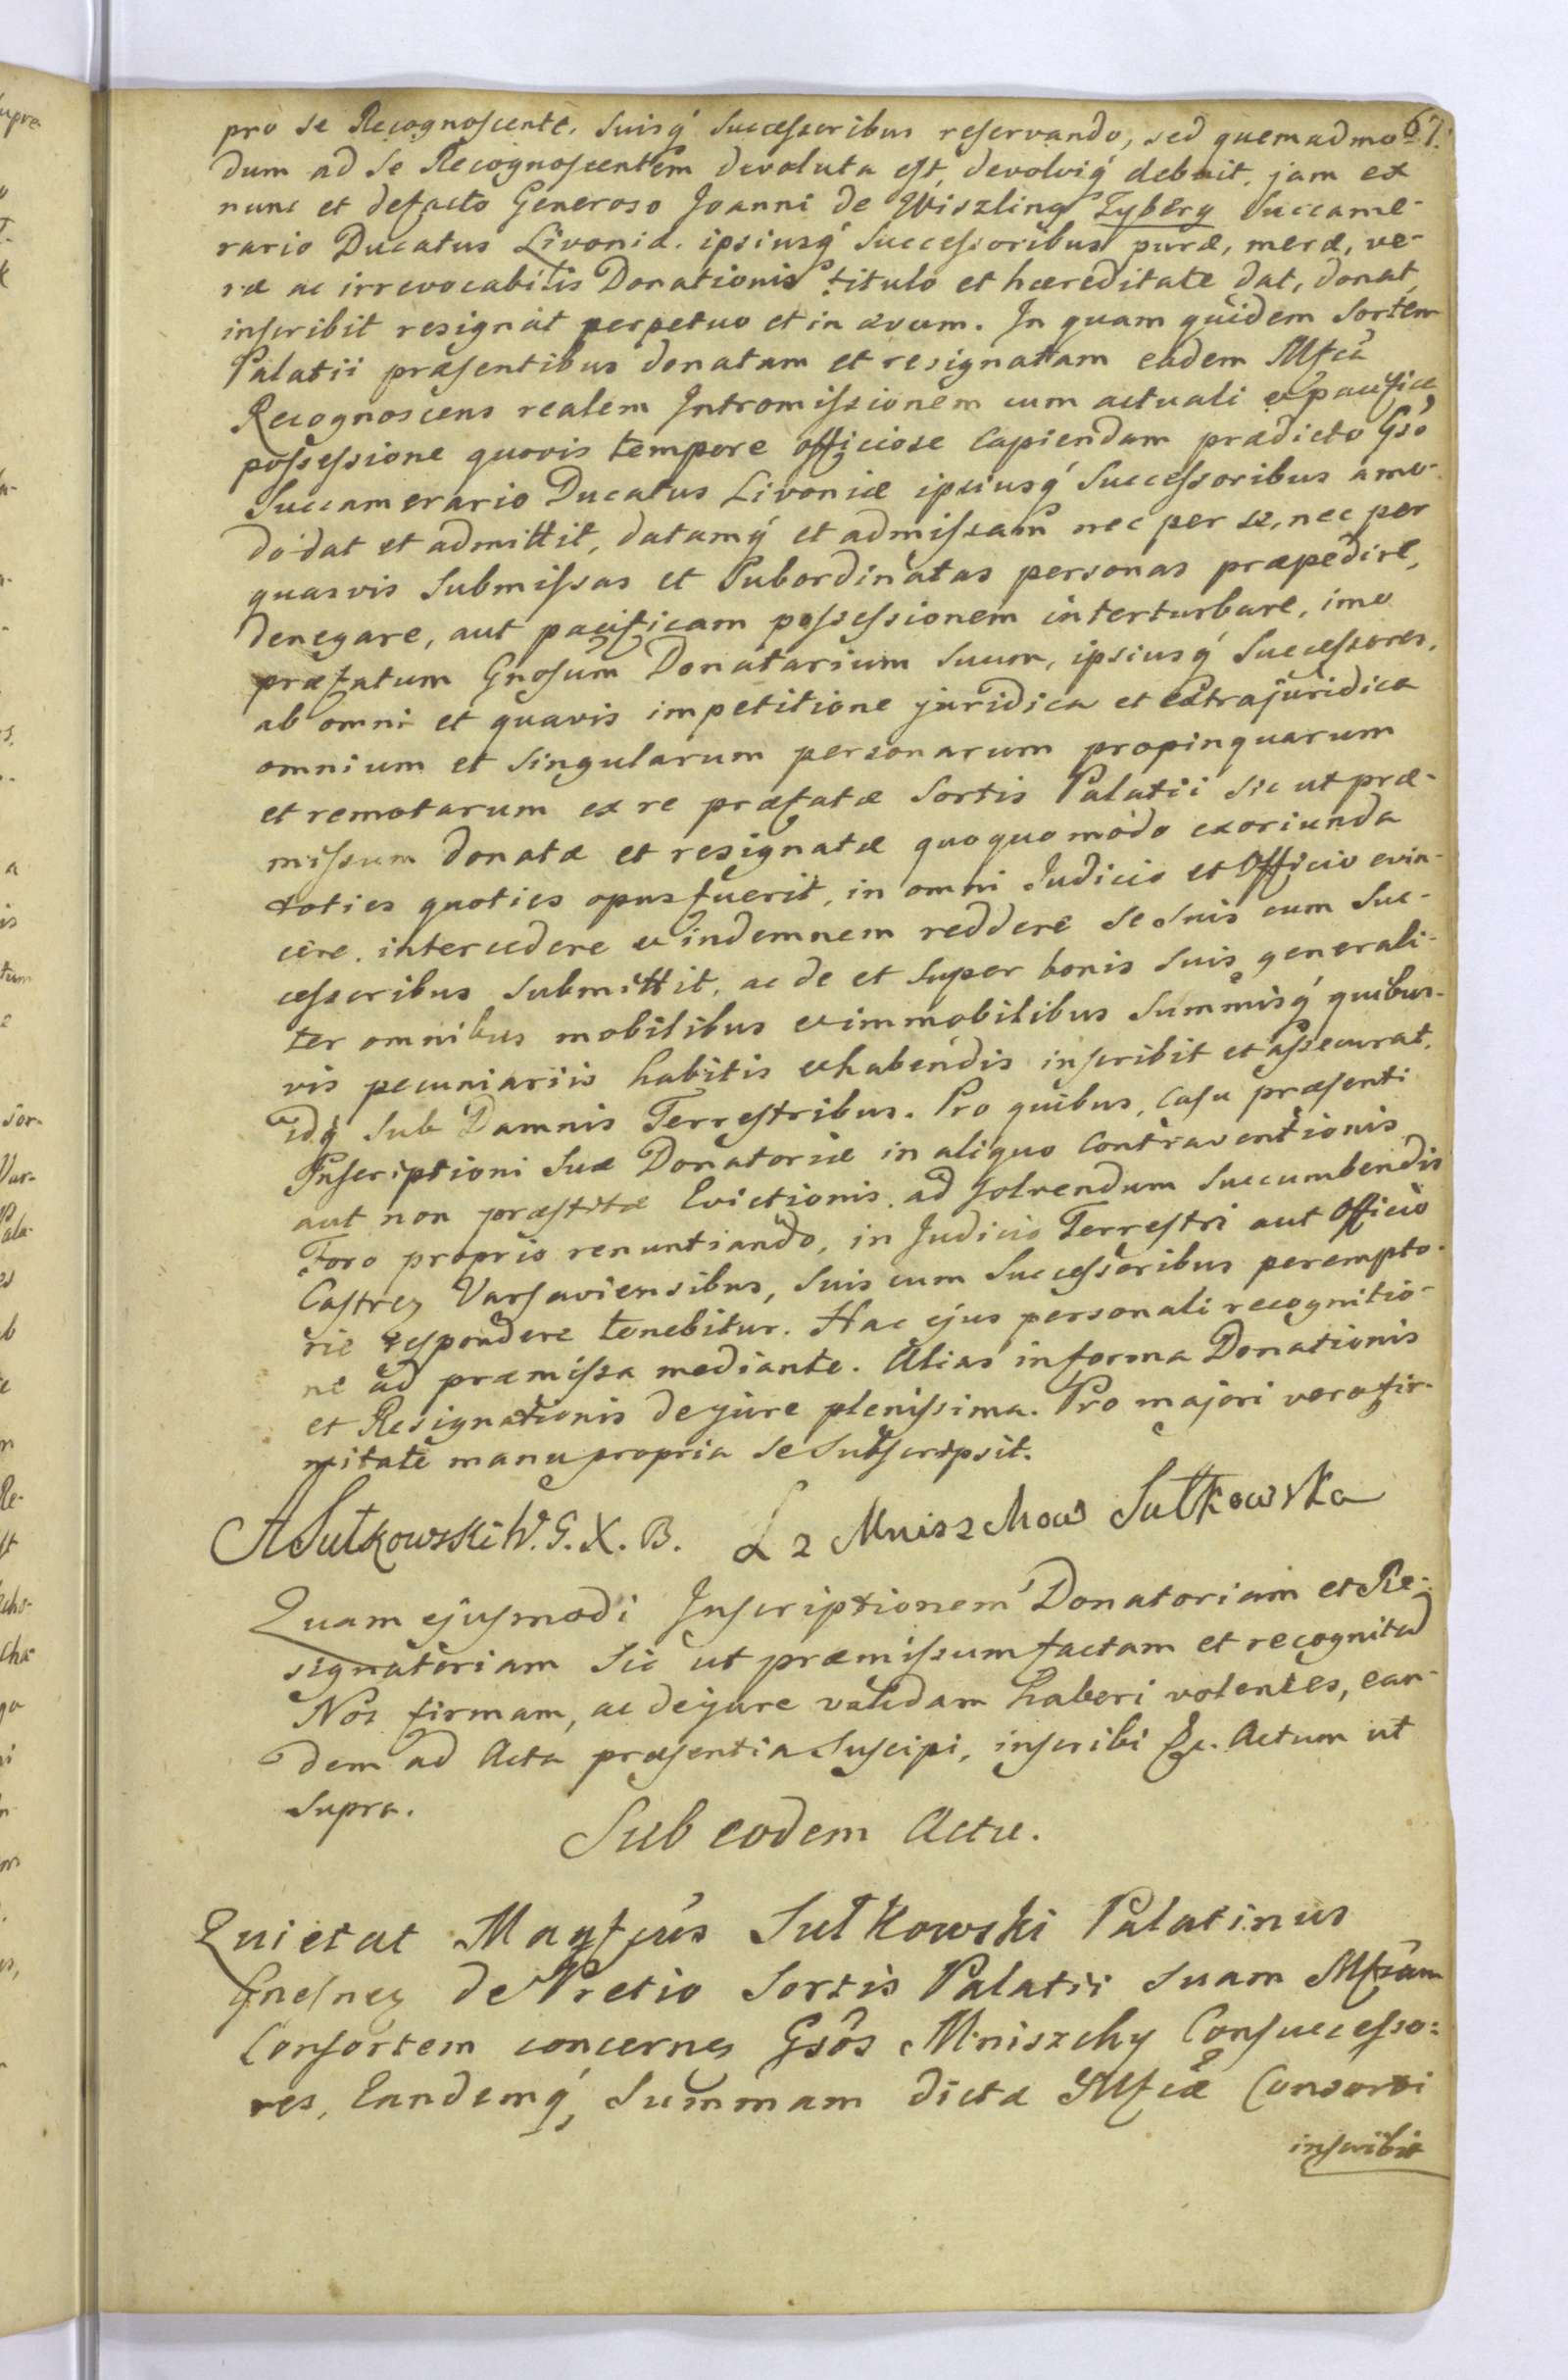 67.
pro se Recognoscente, suisq́ Successoribus reservando, sed quemadmo-
dum ad se Recognoscentem devoluta est, devolviq́ debuit, jam ex
nunc et defacto Generoso Joanni de Wiszling Zyberg Succame-
rario Ducatus Livoniæ ipsiusq́ Successoribus puræ, meræ, ve-
ræ ac irrevocabilis Donationis titulo et hæreditate dat, donat,
inscribit resignat perpetuo et in ævum. In quam quidem Sortem
Palatii præsentibus donatam et resignatam eadem Mfca
Recognoscens realem Intromissionem cum actuali et pacifica
possessione quovis tempore officiose capiendam prædicto Gsô
Succamerario Ducatus Livoniæ ipsiusq́ Successoribus amo-
do dat et admittit, datamq́ et admissam nec per se, nec per
quasvis Submissas et Subordinatas personas præpedire,
denegare, aut pacificam possessionem interturbare, imo
præfatum Gnosum Donatarium Suum, ipsiusq́ Successores,
ab omni et quavis impetitione juridica et extrajuridica
omnium et Singularum personarum propinquarum
et remotarum ex re præfatæ Sortis Palatii sic ut præ-
missum donatæ et resignatæ quoquo modo exoriunda
toties quoties opus fuerit, in omni Judicio et Officio evin-
cere, intercedere et indemnem reddere se Suis cum Suc-
cessoribus Submittit, ac de et Super bonis Suis generali-
ter omnibus mobilibus et immobilibus Summisq́ quibus-
vis pecuniariis habitis et habendis inscribit et assecurat,
idq́ Sub Damnis Terrestribus. Pro quibus, Casu præsenti
Inscriptioni Suæ Donatoriæ in aliquo Contraventionis
aut non præstitæ Evictionis, ad solvendum Succumbendis
Foro proprio renuntiando, in Judicio Terrestri aut Officio
Castren Varsaviensibus, Suis cum Successoribus perempto-
rie respondere tenebitur. Hac ejus personali recognitio-
ne ad præmissa mediante. Alias in forma Donationis
et Resignationis de jure plenissima. Pro majori vero fir-
mitate manu propria se Subscripsit.
A Sułkowski W. G. X. B. L z Mniszchow Sułkowska
Quam ejusmodi Inscriptionem Donatoriam et Re-
signatoriam Sic ut præmissum factam et recognitã
Nos firmam, ac de jure validam haberi volentes, ean-
dem ad Acta præsentia Suscipi, inscribi &c. Actum ut
Supra.
Sub eodem Actu.
Quietat Magfcus Sułkowski Palatinus
Gnesnen de Pretio Sortis Palatii Suam Mfcam
Consortem concernen Gsôs Mniszchy Consuccesso:
res, Eandemq́ Summam dictæ Mfcæ Consorti
inscribit